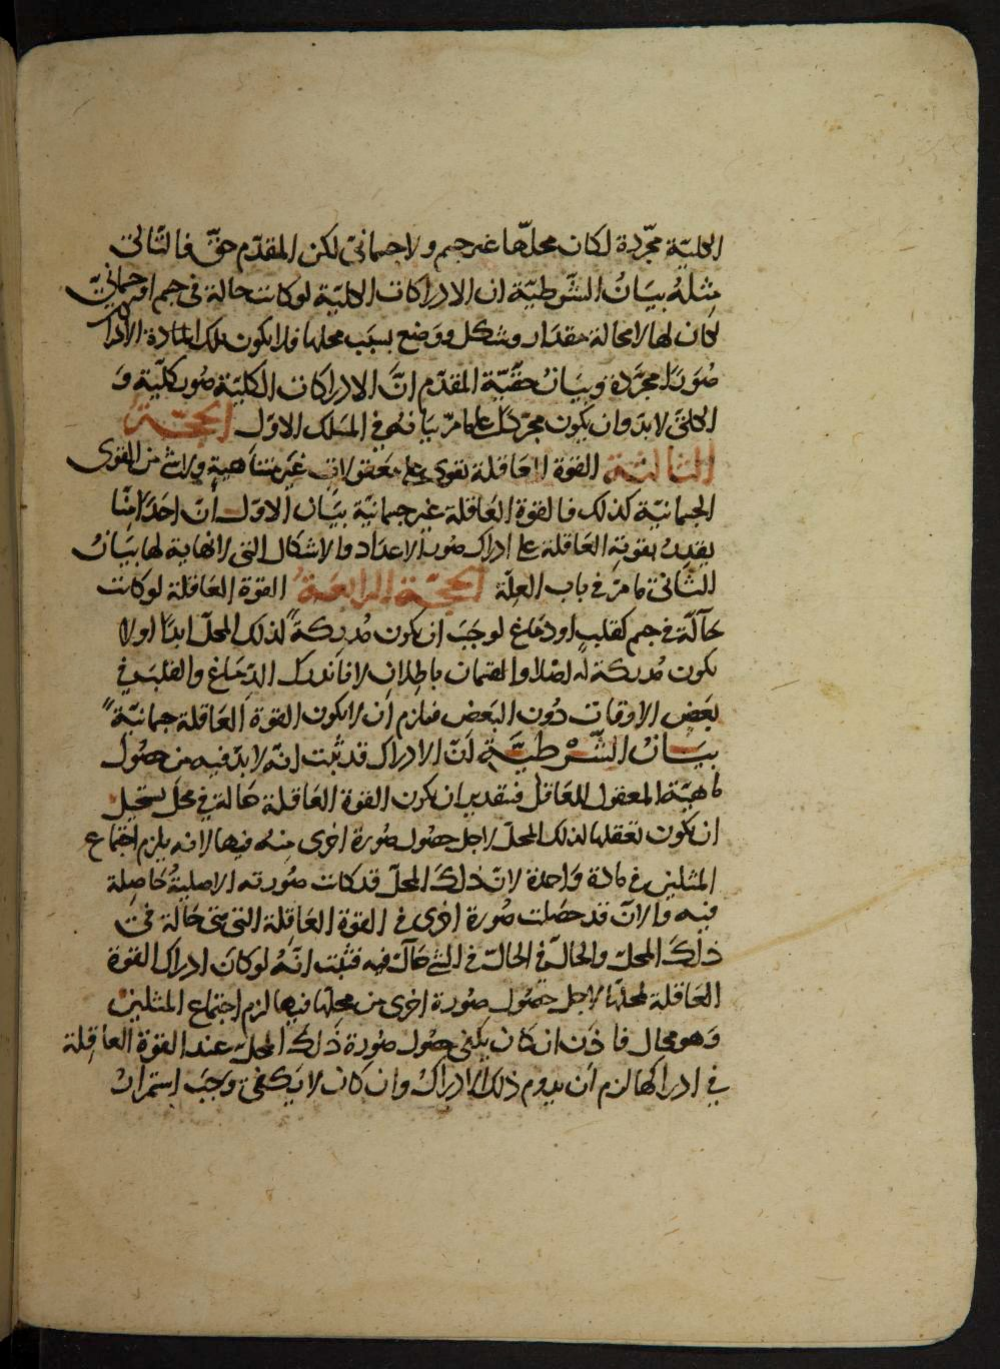 الكلية مجرّدة لكان محلّها غير جسم ولا جسمانى لكن المقدّم حقّ فالتّالى
مثلهُ بيَانُ الشّرطيّة ان الادراكات الكلية لو كانت حالة فى جسم او جسمانىّ
لكان لها لا محالة مقدَار وشكل ووَضع بسبَب محلها فلا يكون تلك
صُوَرًا مجرّدة وبيَانُ حقّيّة المقدّم انّ الادراكات الكليّة صُور كليّة وَ
الكلىّ لابدّ وان يكون مجرّدًا على ما مرّ بيَانهُ فى المسلك الاوّل الحجّة
الثالثة القوة العَاقلة تقوى على معقولات غير متنَاهية ولا شئ من القوى
الجسمانيّة كذلك فالقوة العَاقلة غير جسمانيّة بيَان الاوّل أنّ احَدًا منّا
يقدِرُ بقوته العَاقلة على ادراك صُور الاعدَاد والاشكال التى لا نهاية لها بيَانُ
الثّانى ما مرّ فى باب العلّة الحجّة الرابعَة القوة العَاقلة لو كانت
حَالّة فى جسم كقلبٍ او دمَاغ لوجَبَ ان يكون مُدركةً لذلك المحلّ ابدًا او لا
يكون مُدركة له اصلا والقسمان باطِلان لانا ندرك الدّمَاغ والقلبَ فى
بعَض الاوقات دُون البَعض فيلزم أن لا يكون القوة العَاقلة جسمانيّة
بيَانُ الشّرطيّة أنّ الادراك قد ثبت انّه لابدّ فيه من حصُول
مَاهيّة المعقول للعَاقل فبتقدير ان يكون القوة العَاقلة حَالة فى محلّ يستحيل
ان يكون تعقلها لذلك المحلّ لاجل حصُول صُورة اخرى منه فيها لانه يلزم اجتماع
المثلين فى مَادة وَاحدة لانّ ذلكَ المحلّ قد كانت صُورته الاصليةُ حَاصِلة
فيه والآنَ قد حصَلت صُورة اخرى فى القوة العَاقِلة التى هى حَالة فى
ذلكَ المحلّ والحالّ فى الحالّ فى الشئ حَالّ فيه فثبت انّهُ لو كانَ ادراك القوة
العَاقلة لمحلّها لاجل حصُول صُورة اخرى من محلّها فيها لزم اجتماع المثلين
وَهو محال فاذن ان كان يكفى حصُول صُورة ذلكَ المحلّ عند القوة العاقِلة
فى ادراكها لزم أن يدوم ذلك الادراكُ وان كان لا يَكفى وجَبَ استمرارُ